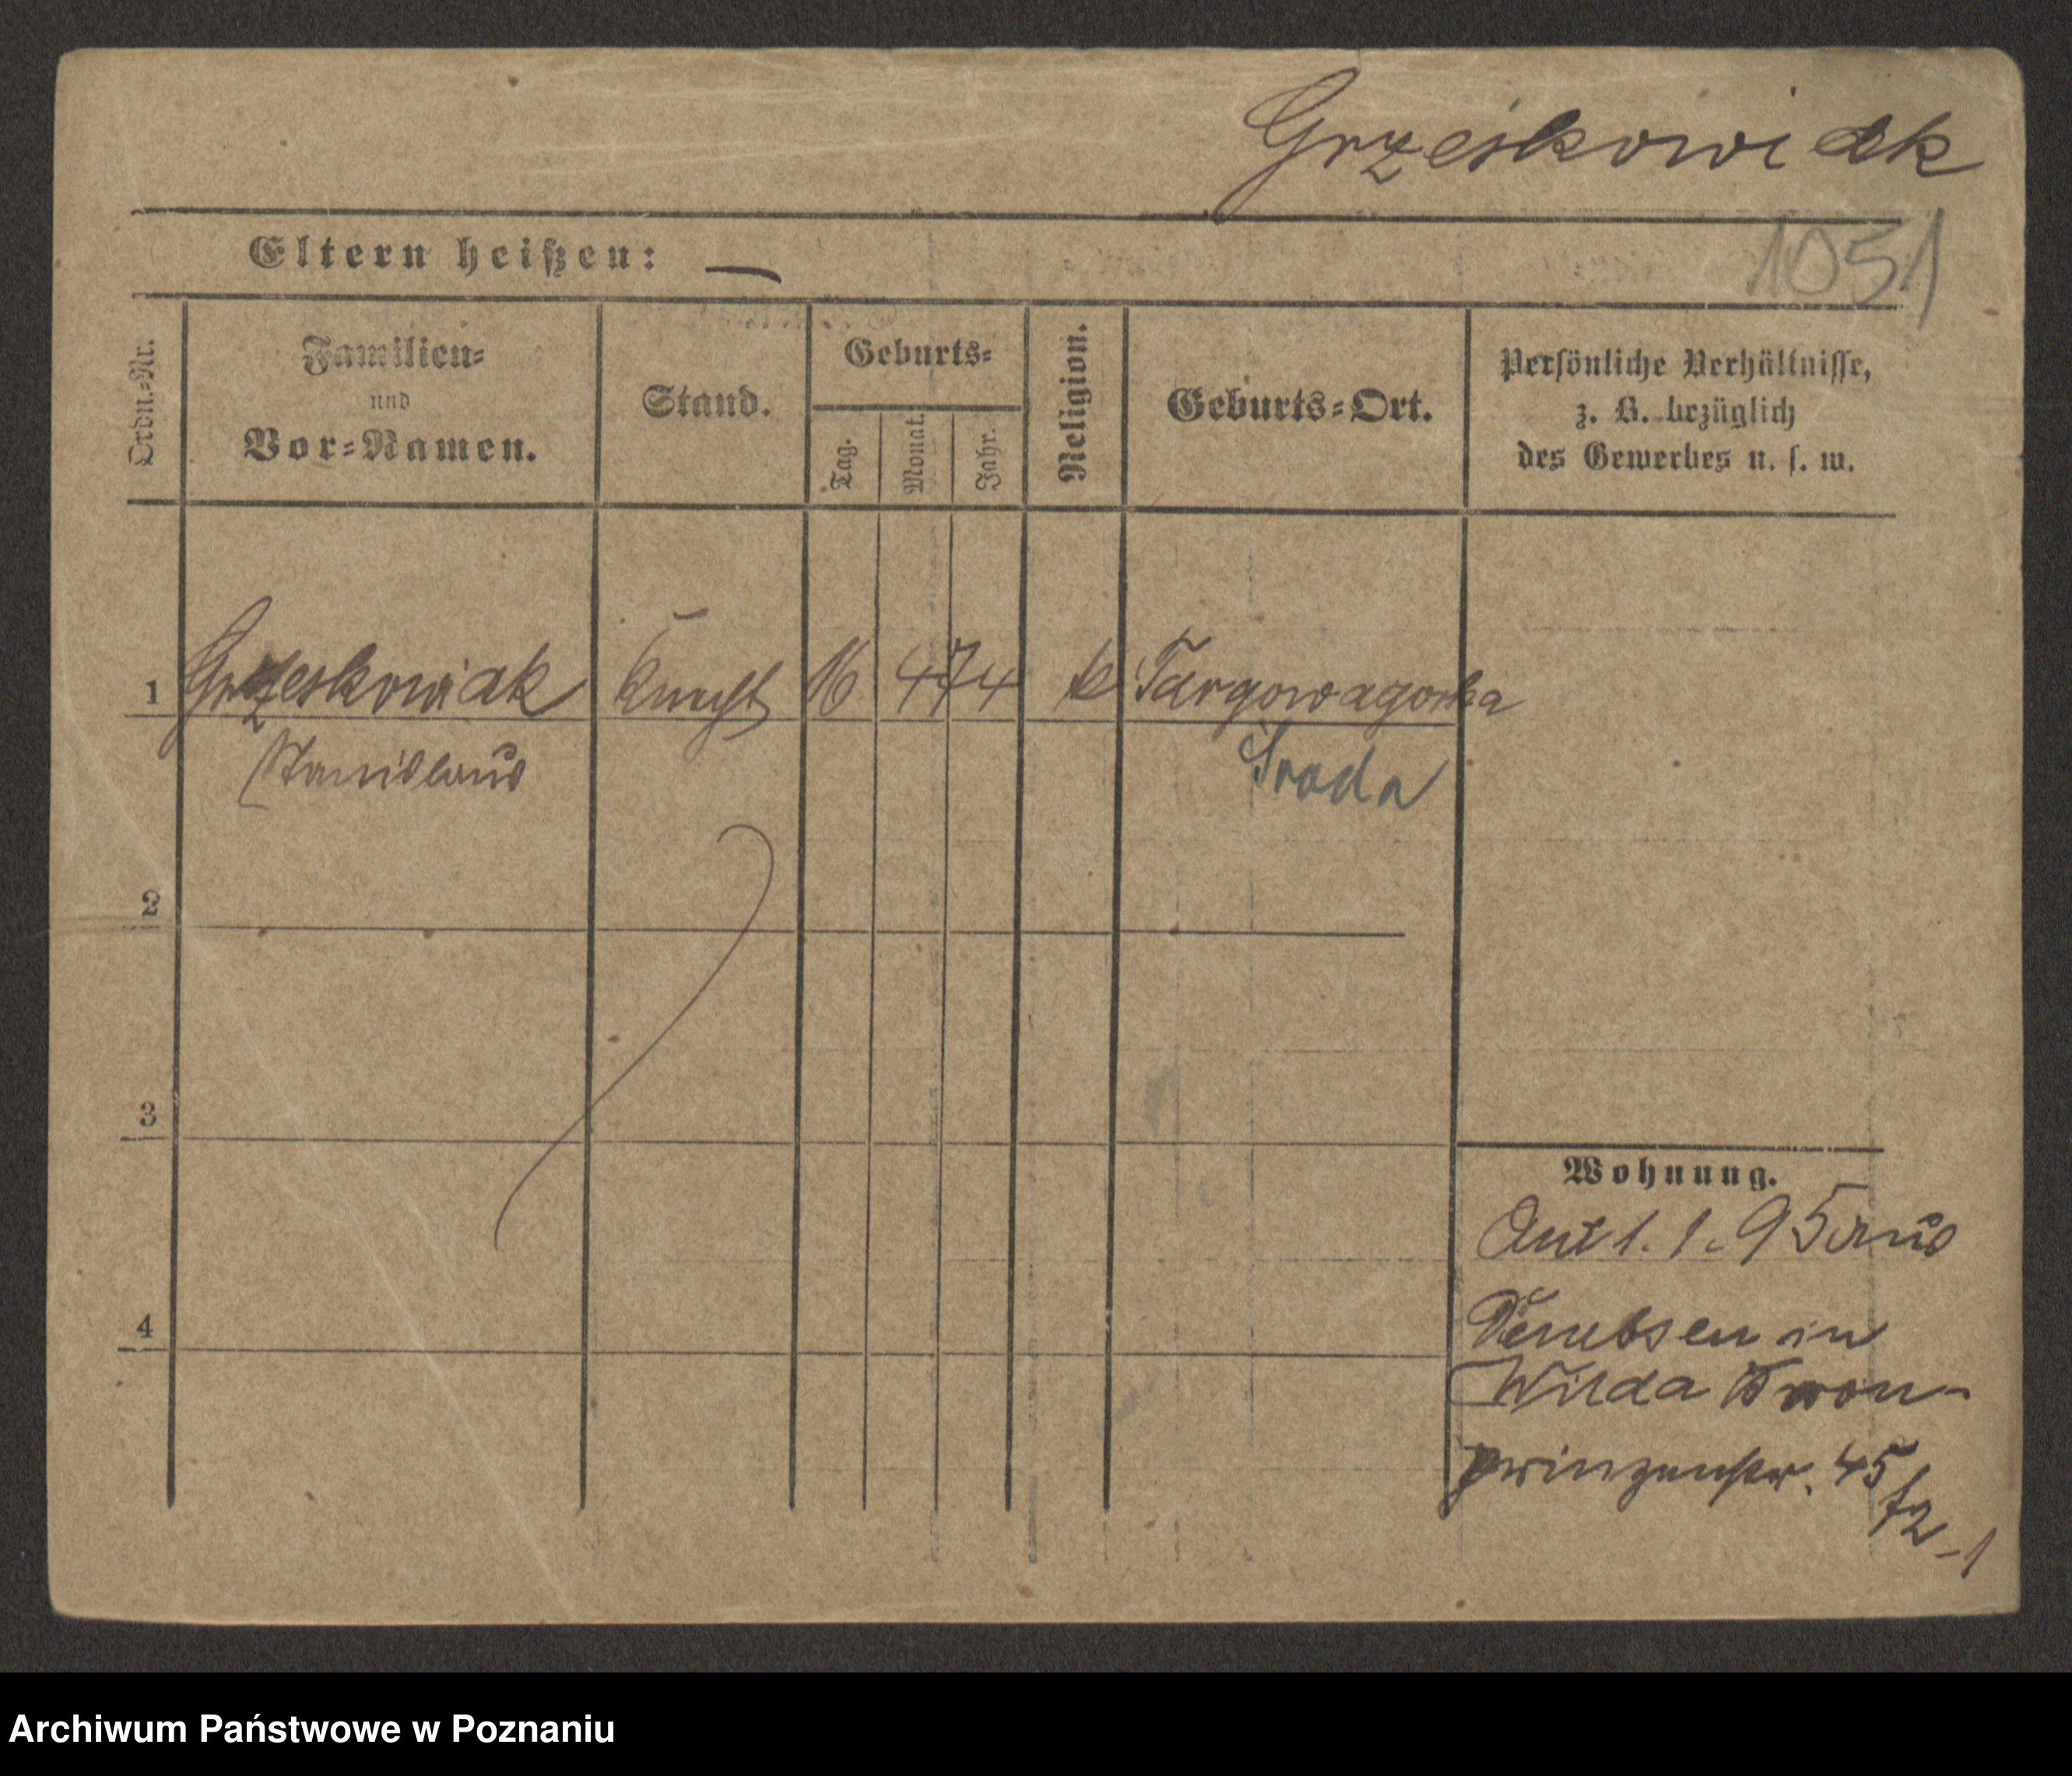 Grześkowiak
Eltern heißen: —
1051
Ordn.=Nr.
Familien=
und
Vor=Namen.
Stand.
Geburts=
Tag.
Monat.
Jahr.
Religion.
Geburts=Ort.
Persönliche Verhältnisse,
z. B. bezüglich
des Gewerbes u. s. w.
1 Grzeskowiak Knecht 16 4 74 k Targowagorka
Stanislaus Sroda
2
3
4
Wohnung.
1. 1. 95 aus
Dembsen in
Wilda Kron-
prinzenstr. 45
Archiwum Państwowe w Poznaniu